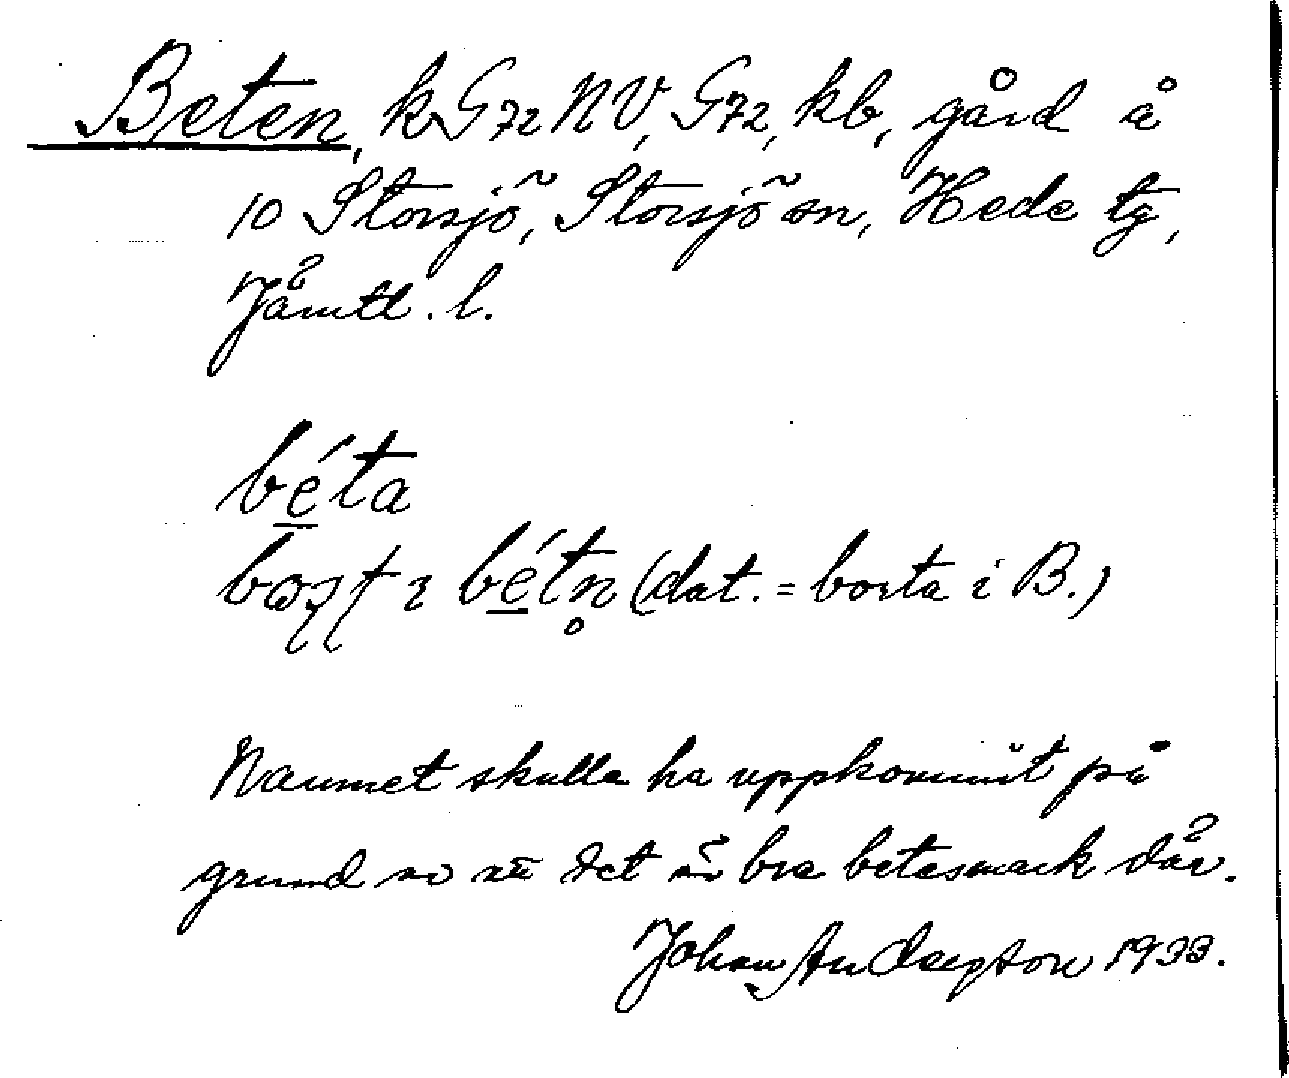 Beten, kG72NV, G72, kb, gård å
10 Storsjö, Storsjö sn, Hede tg,
Jämtl. l.
béta
bétn̥ (dat. = borta i B.)
Namnet skulla ha uppkommit på
grund av att det är bra betesmark där.
Johan 1933.